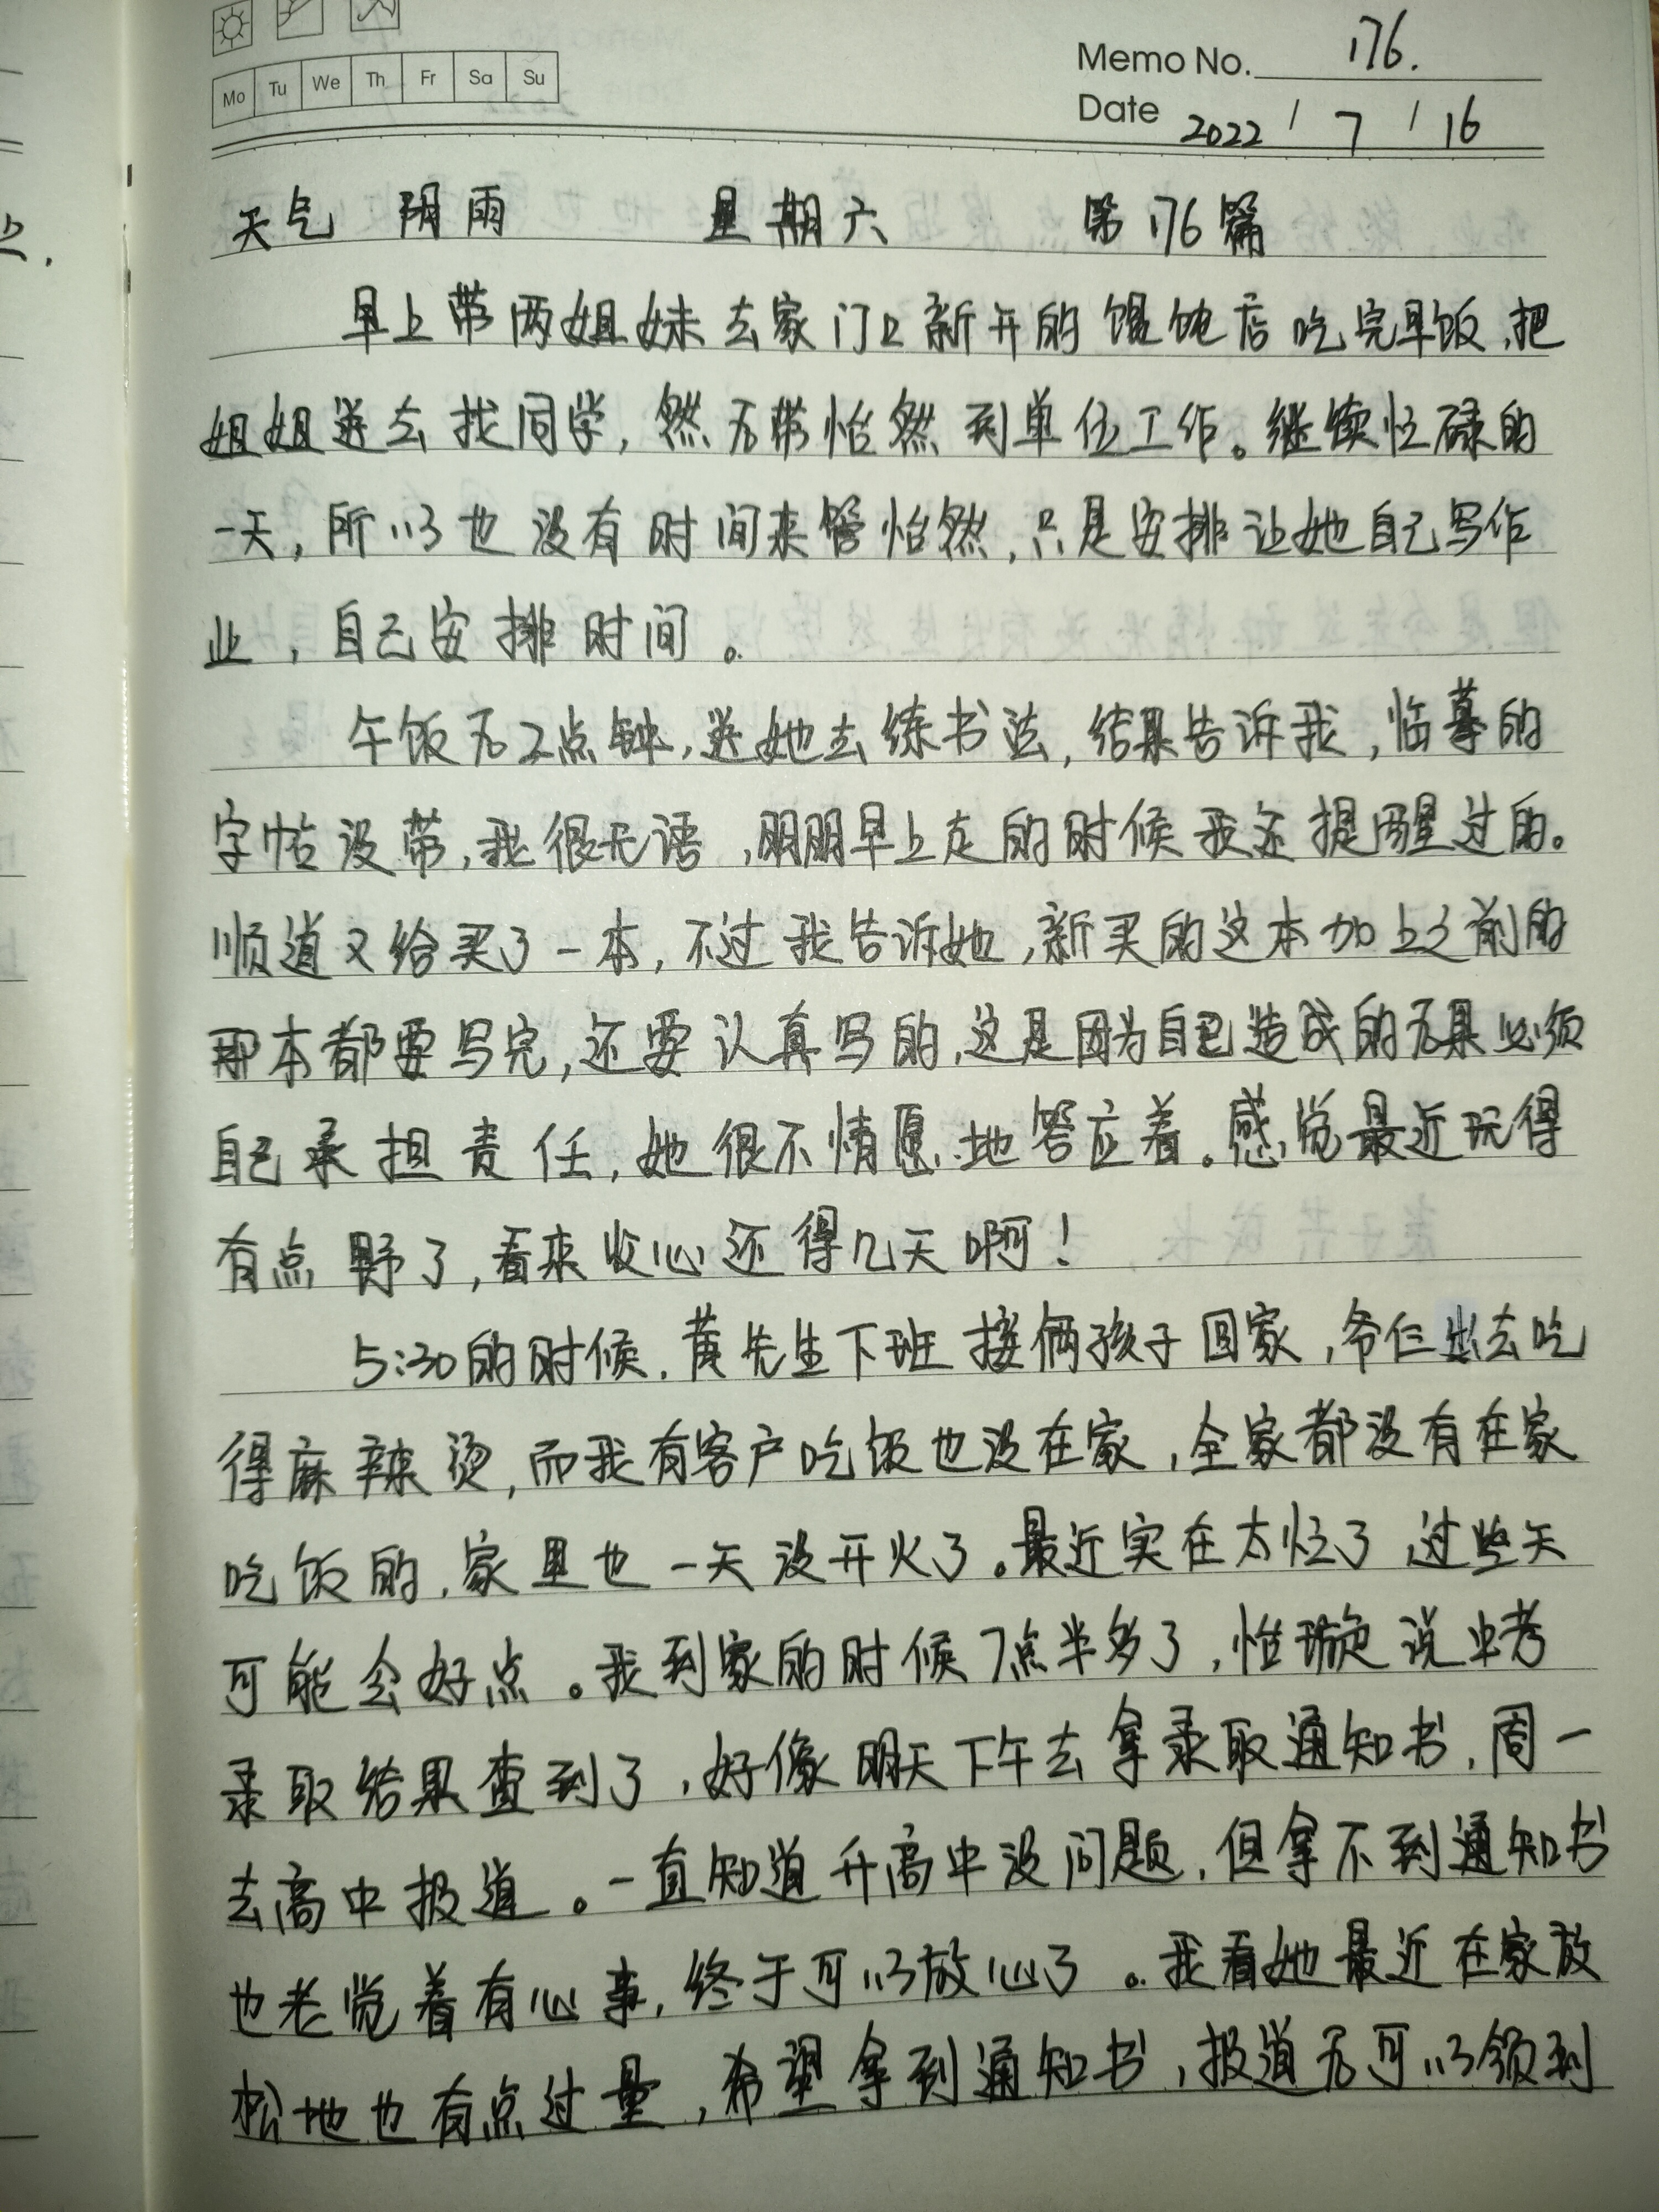 Mo Tu We Th Fr Sa Su
Memo No. 176.
Date 2022 / 7 / 16
天气 阴雨 星期六 第176篇
早上带两姐妹去家门口新开的馄饨店吃完早饭,把
姐姐送去找同学,然后带怡然到单位工作。继续忙碌的
一天,所以也没有时间来管怡然,只是安排让她自己写作
业,自己安排时间。
午饭后2点钟,送她去练书法,结果告诉我,临摹的
字帖没带,我很无语,明明早上走的时候我还提醒过的。
顺道又给买了一本,不过我告诉她,新买的这本加上之前的
那本都要写完,还要认真写的,这是因为自己造成的后果必须
自己承担责任,她很不情愿地答应着。感觉最近玩得
有点野了,看来收心还得几天啊!
5:30的时候,黄先生下班接俩孩子回家,爷仨出去吃
得麻辣烫,而我有客户吃饭也没在家,全家都没有在家
吃饭的,家里也一天没开火了。最近实在太忙了 过些天
可能会好点。我到家的时候7点半多了,怡璇说中考
录取结果查到了,好像明天下午去拿录取通知书,周一
去高中报道。一直知道升高中没问题,但拿不到通知书
也老觉着有心事,终于可以放心了。我看她最近在家放
松地也有点过量,希望拿到通知书,报道后可以领到